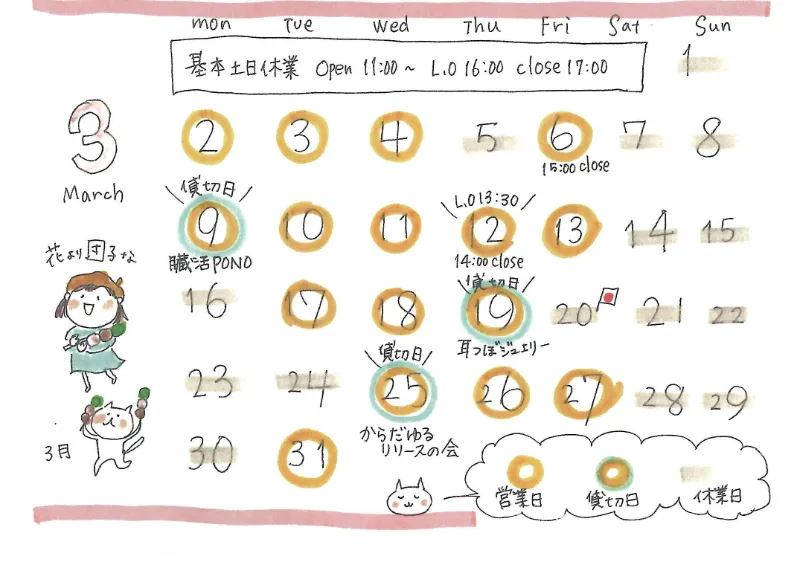 mon Tue Wed Thu Fri Sat Sun
基本土日休業 Open 11:00～ L.O 16:00 close 17:00
1
3
March
2 3 4 5 6 7 8
15:00 close
貸切日
L.O 13:30
9 10 11 12 13 14 15
臓活PONO
14:00 close
花より団子な
貸切日
16 17 18 19 20 21 22
耳つぼジュエリー
貸切日
23 24 25 26 27 28 29
からだゆる
リリースの会
3月
30 31
営業日 貸切日 休業日